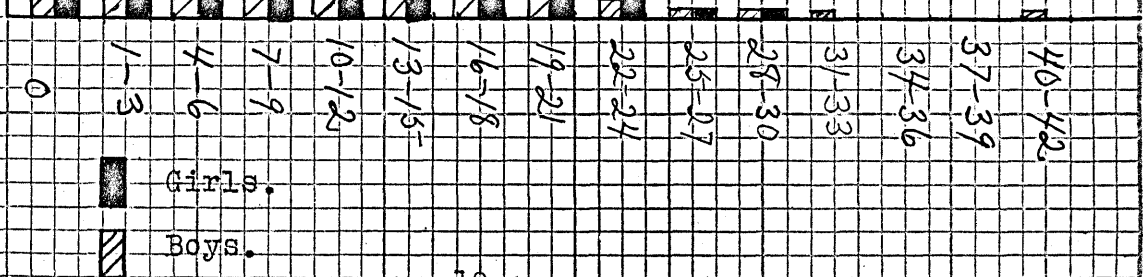 0 1-3 4-6 7-9 10-12 13-15 16-18 19-21 22-24 25-27 28-30 31-33 34-36 37-39 40-42
Girls.
Boys.